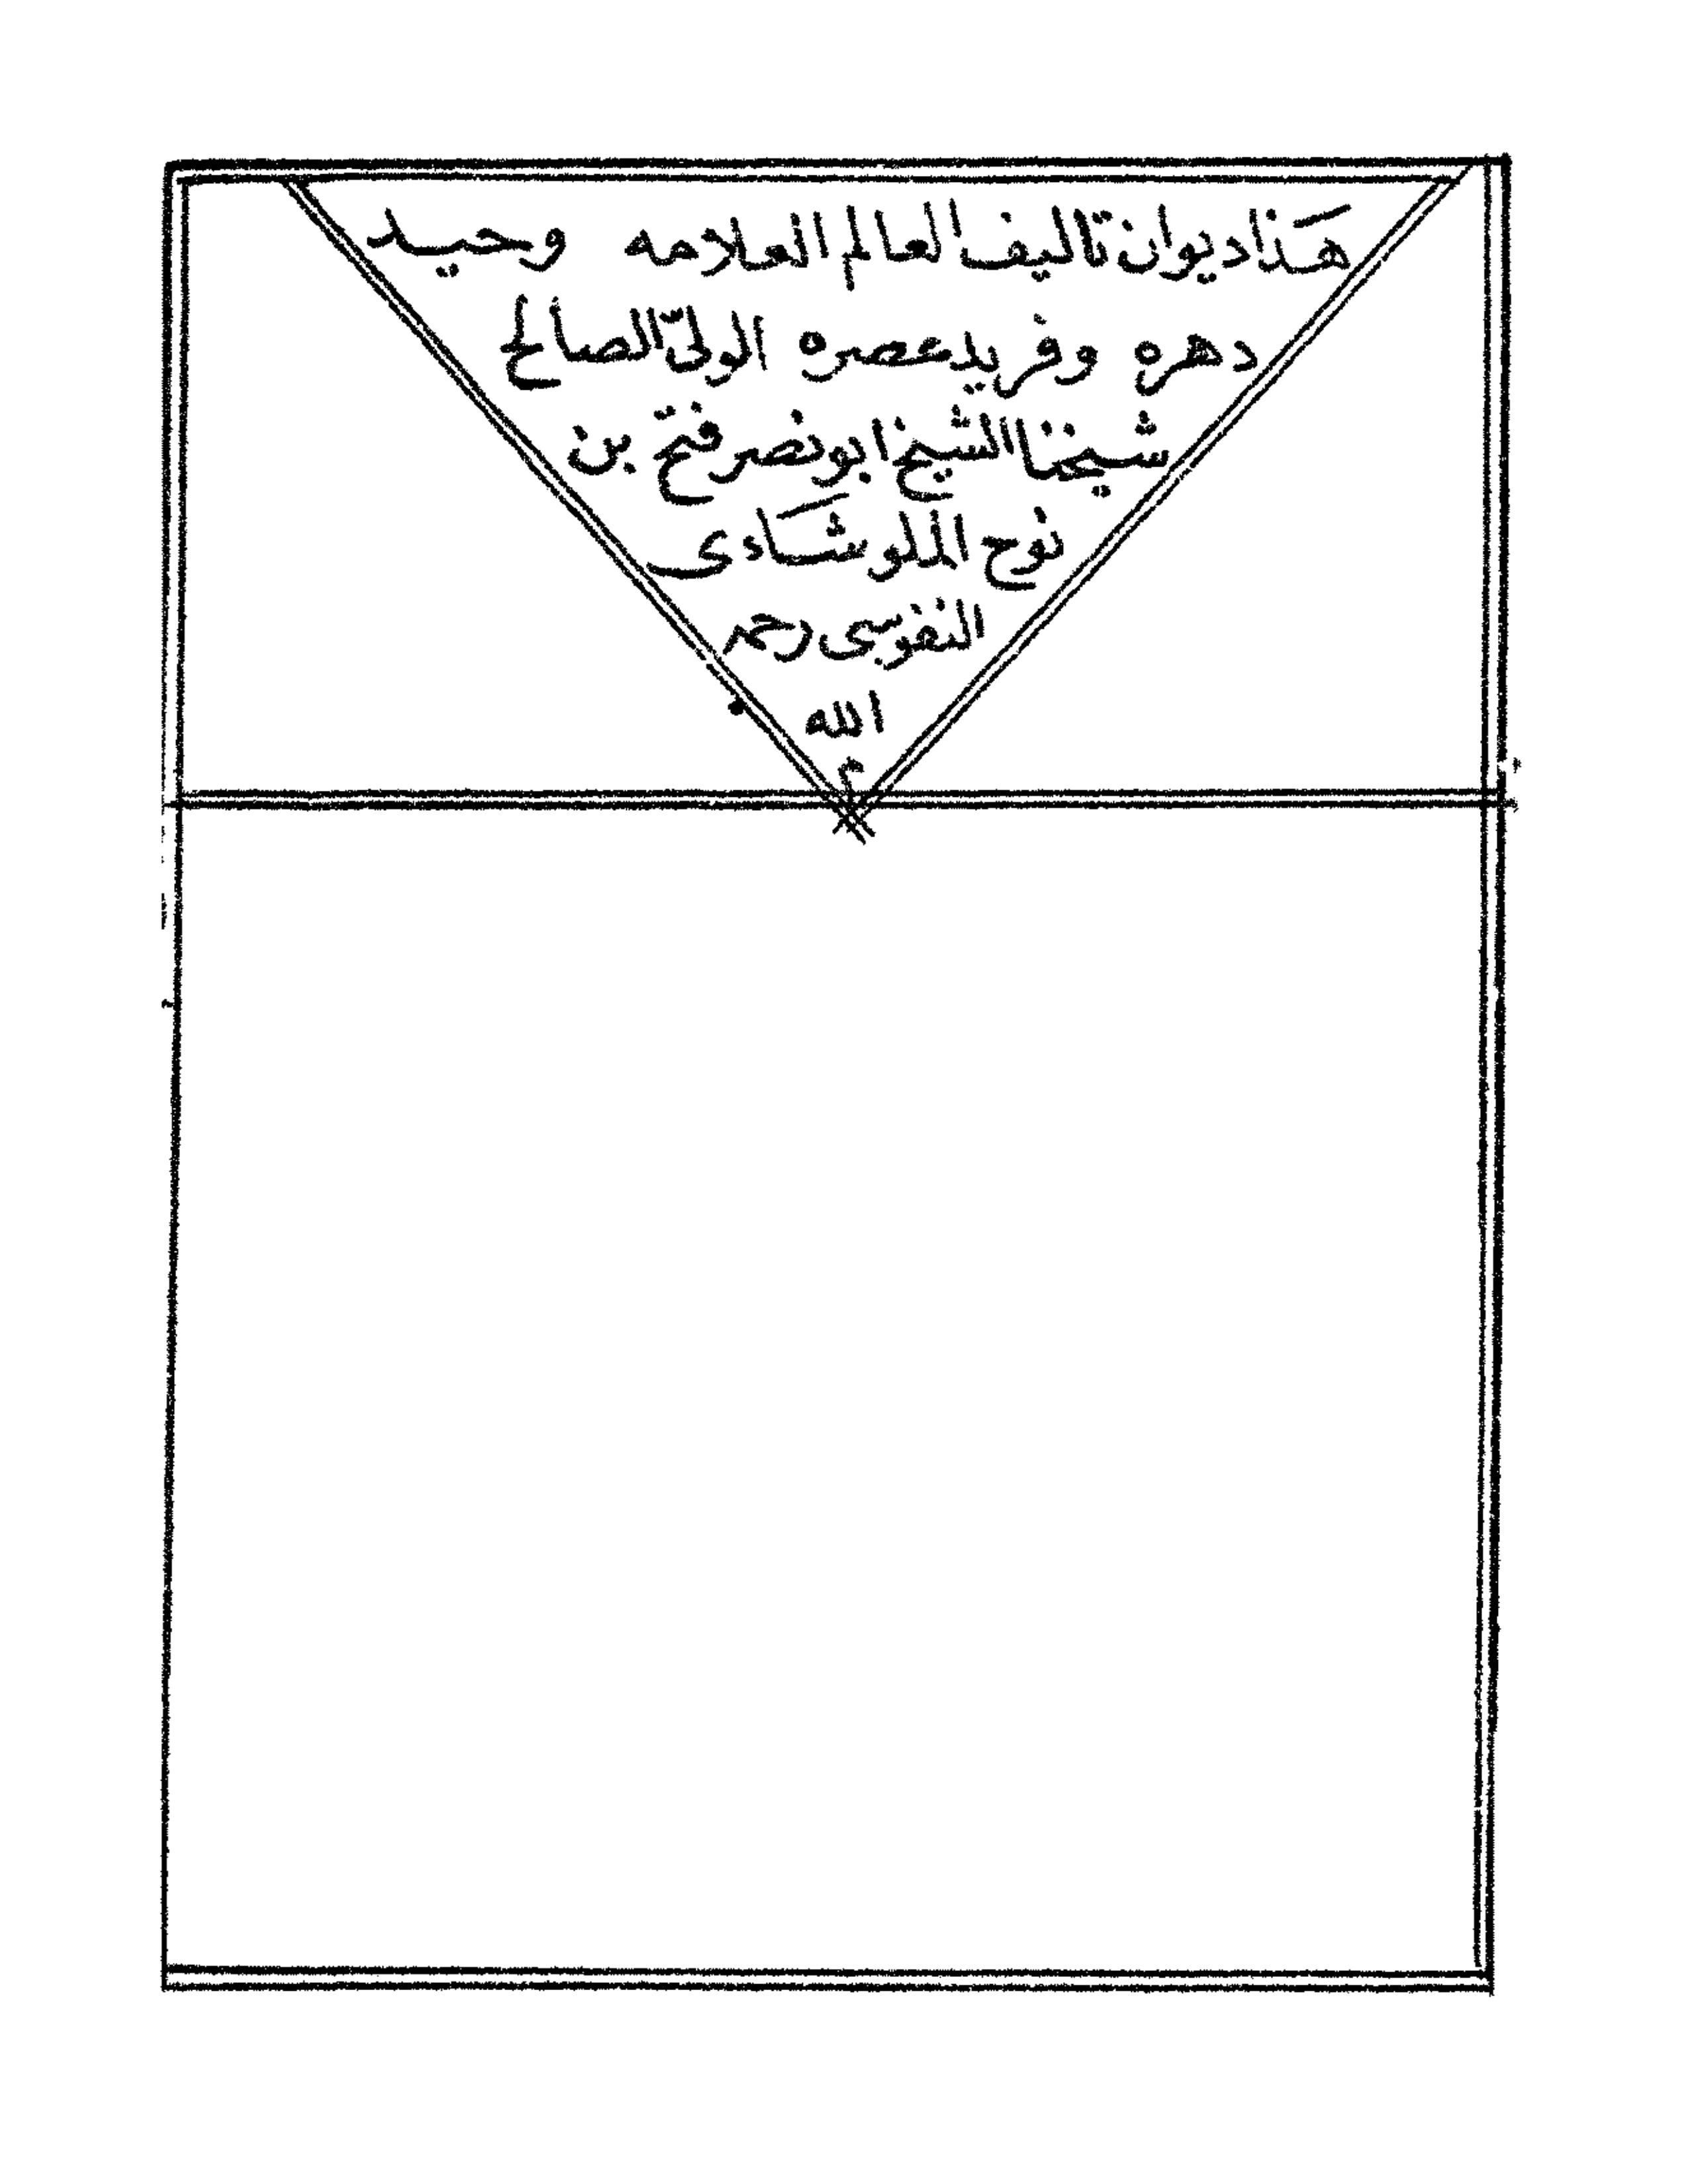 هذا ديوان تاليف العالم العلامه وحيد
دهره وفريد عصره الولىّ الصالح
شيخنا الشيخ ابو نصر فتح بن
نوح الملوشاءى
النفوسى رحمه
الله
م